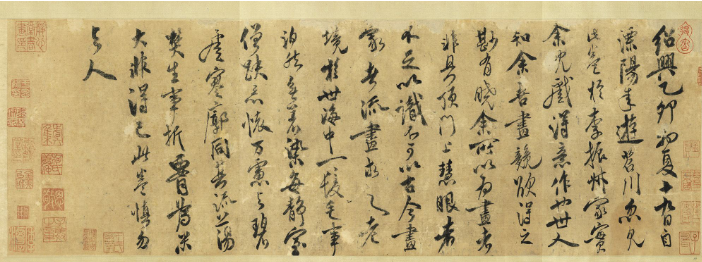 紹興乙卯初夏十九日自
溧陽來遊苕川忽見
此卷於李振叔家實
余兒戲得意作也世人
知余喜畫競欲得之
尠有曉余所以為畫者
非具頂門上慧眼者
不足以識不可以古今畫
家者流畫求之老
境於世海中一髮毛事
泊然無著染每靜室
僧趺忘懷萬慮與碧
虛寥廓同其流蕩
焚生事折腰為米
大非得已此卷慎勿
與人